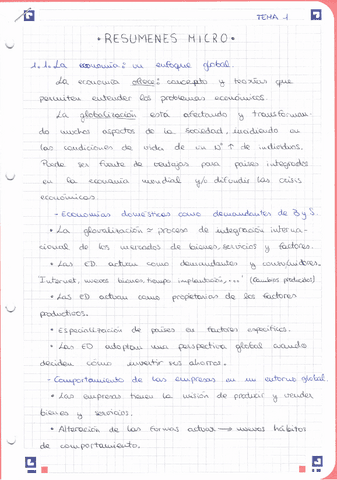 TEMA 1
• RESUMENES MICRO •
1.1. La economía: un enfoque global.
La economía ofrece conceptos y teorías que
permiten entender los problemas económicos.
La globalización está afectando y transforman-
do muchos aspectos de la sociedad, incidiendo en
las condiciones de vida de un nº ↑ de individuos.
Puede ser fuente de ventajas para países integrados
en la economía mundial y/o difundir las crisis
económicas.
- Economías domésticas como demandantes de B y S.
• La globalización = proceso de integración interna-
cional de los mercados de bienes, servicios y factores.
• Las ED actúan como demandantes y consumidores.
Internet, nuevos bienes, tiempo implantación, ... (Cambios producidos)
• Las ED actúan como propietarias de los factores
productivos.
• Especialización de países en factores específicos.
• Las ED adoptan una perspectiva global cuando
deciden cómo invertir sus ahorros.
- Comportamiento de las empresas en un entorno global.
• Las empresas tienen la misión de producir y vender
bienes y servicios.
• Alteración de las formas actuar → nuevos hábitos
de comportamiento.